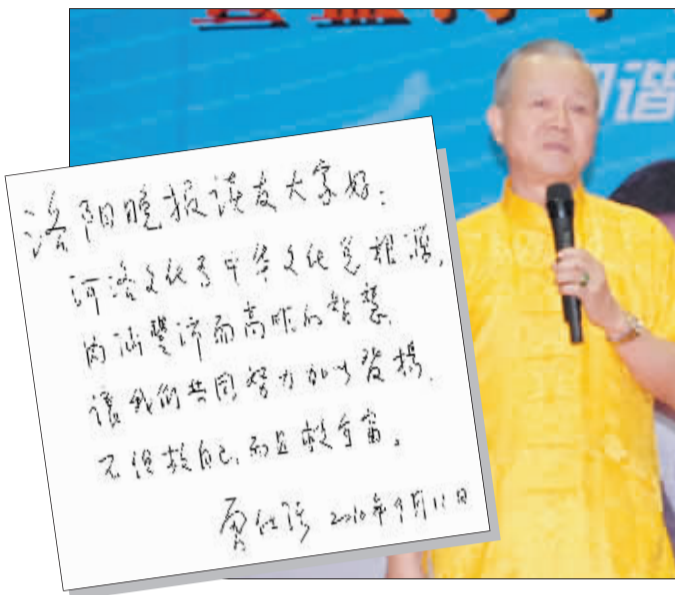 洛阳晚报读友大家好：
河洛文化为中华文化总根源，
内涵豐沛而高明的智慧，
讓我们共同努力加以發揚，
不但救自己，而且救宇宙。
曾仕强 2010年9月11日
谐